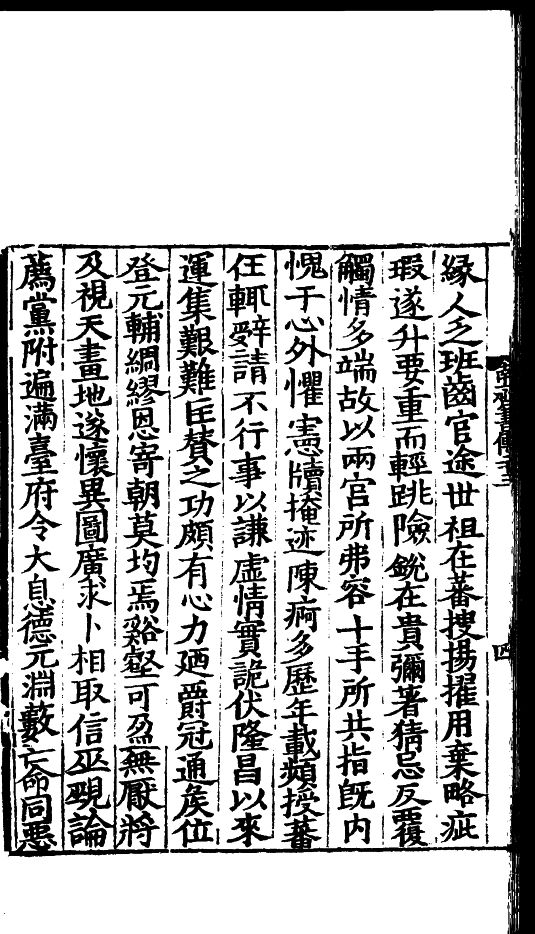 緣人乏班齒官途世祖在蕃搜揚擢用棄略疵
瑕遂升要重而輕跳險銳在貴彌著猜忌反覆
觸情多端故以兩宮所弗容十手所共指旣内
愧于心外懼憲牘掩迹陳痾多歷年載頻授蕃
任輒辝請不行事以謙虚情實詭伏隆昌以來
運集艱難匡賛之功頗有心力廼爵冠通侯位
登元輔綢繆恩寄朝莫均焉谿壑可盈無厭將
及視天畫地遂懷異圖廣求卜相取信巫覡論
薦黨附遍滿臺府令大息德元淵藪亡命同惡
四